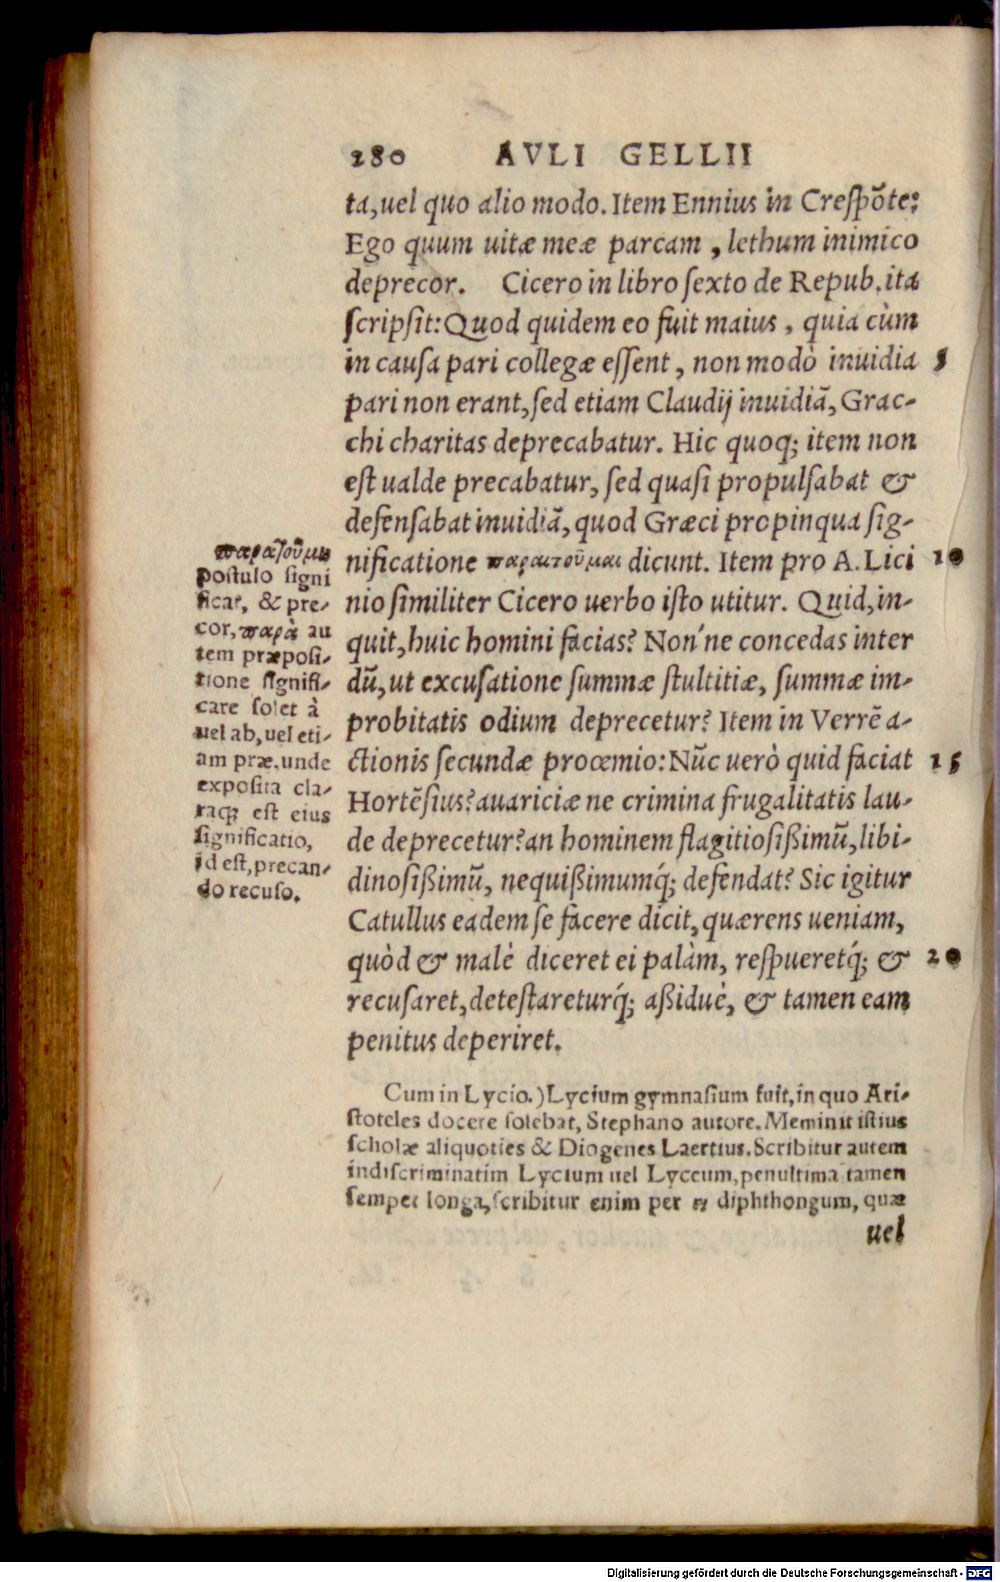 280 AVLI GELLII
ta, uel quo alio modo. Item Ennius in Crespõte:
Ego quum uitæ meæ parcam, lethum inimico
deprecor. Cicero in libro sexto de Repub. ita
scripsit: Quod quidem eo fuit maius, quia cùm
in causa pari collegæ essent, non modò inuidia 5
pari non erant, sed etiam Claudij inuidiã, Grac-
chi charitas deprecabatur. Hic quoq; item non
est ualde precabatur, sed quasi propulsabat &
defensabat inuidiã, quod Græci propinqua sig-
nificatione παραιτοῦμαι dicunt. Item pro A. Lici 10
nio similiter Cicero uerbo isto utitur. Quid, in-
quit, huic homini facias? Non'ne concedas inter
dũ, ut excusatione summæ stultitiæ, summæ im-
probitatis odium deprecetur? Item in Verrẽ a-
ctionis secundæ proœmio: Nũc uerò quid faciat 15
Hortẽsius? auariciæ ne crimina frugalitatis lau-
de deprecetur? an hominem flagitiosißimũ, libi-
dinosißimũ, nequißimumq́; defendat? Sic igitur
Catullus eadem se facere dicit, quærens ueniam,
quòd & malè diceret ei palàm, respueretq́; & 20
recusaret, detestareturq́; aßiduè, & tamen eam
penitus deperiret.
παραιτοῦμαι
postulo signi
ficat, & pre-
cor, παρὰ au
tem præposi-
tione signifi-
care solet à
uel ab, uel eti-
am præ. unde
exposita cla-
raq; est eius
significatio,
id est, precan-
do recuso.
Cum in Lycio.) Lycium gymnasium fuit, in quo Ari-
stoteles docere solebat, Stephano autore. Meminit istius
scholæ aliquoties & Diogenes Laertius. Scribitur autem
indiscriminatim Lycium uel Lyceum, penultima tamen
semper longa, scribitur enim per ει diphthongum, quæ
uel
Digitalisierung gefördert durch die Deutsche Forschungsgemeinschaft - DFG